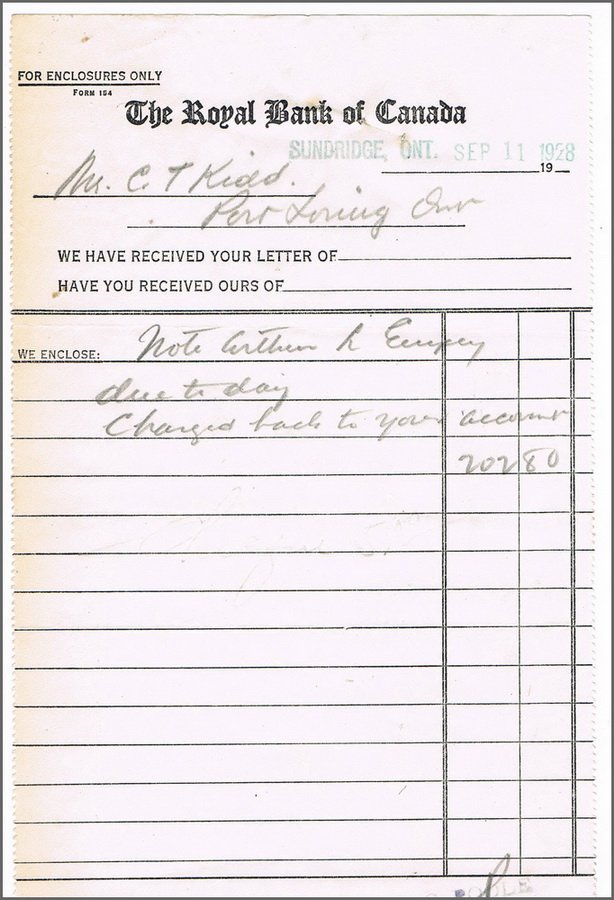 FOR ENCLOSURES ONLY
FORM 154
The Royal Bank of Canada
SUNDRIDGE, ONT. SEP 11 1928
19
Mr. C. T Kidd.
Port Loring Ont
WE HAVE RECEIVED YOUR LETTER OF
HAVE YOU RECEIVED OURS OF
WE ENCLOSE: Note Arthur L Empey
due to day
Charged back to your account
202 80